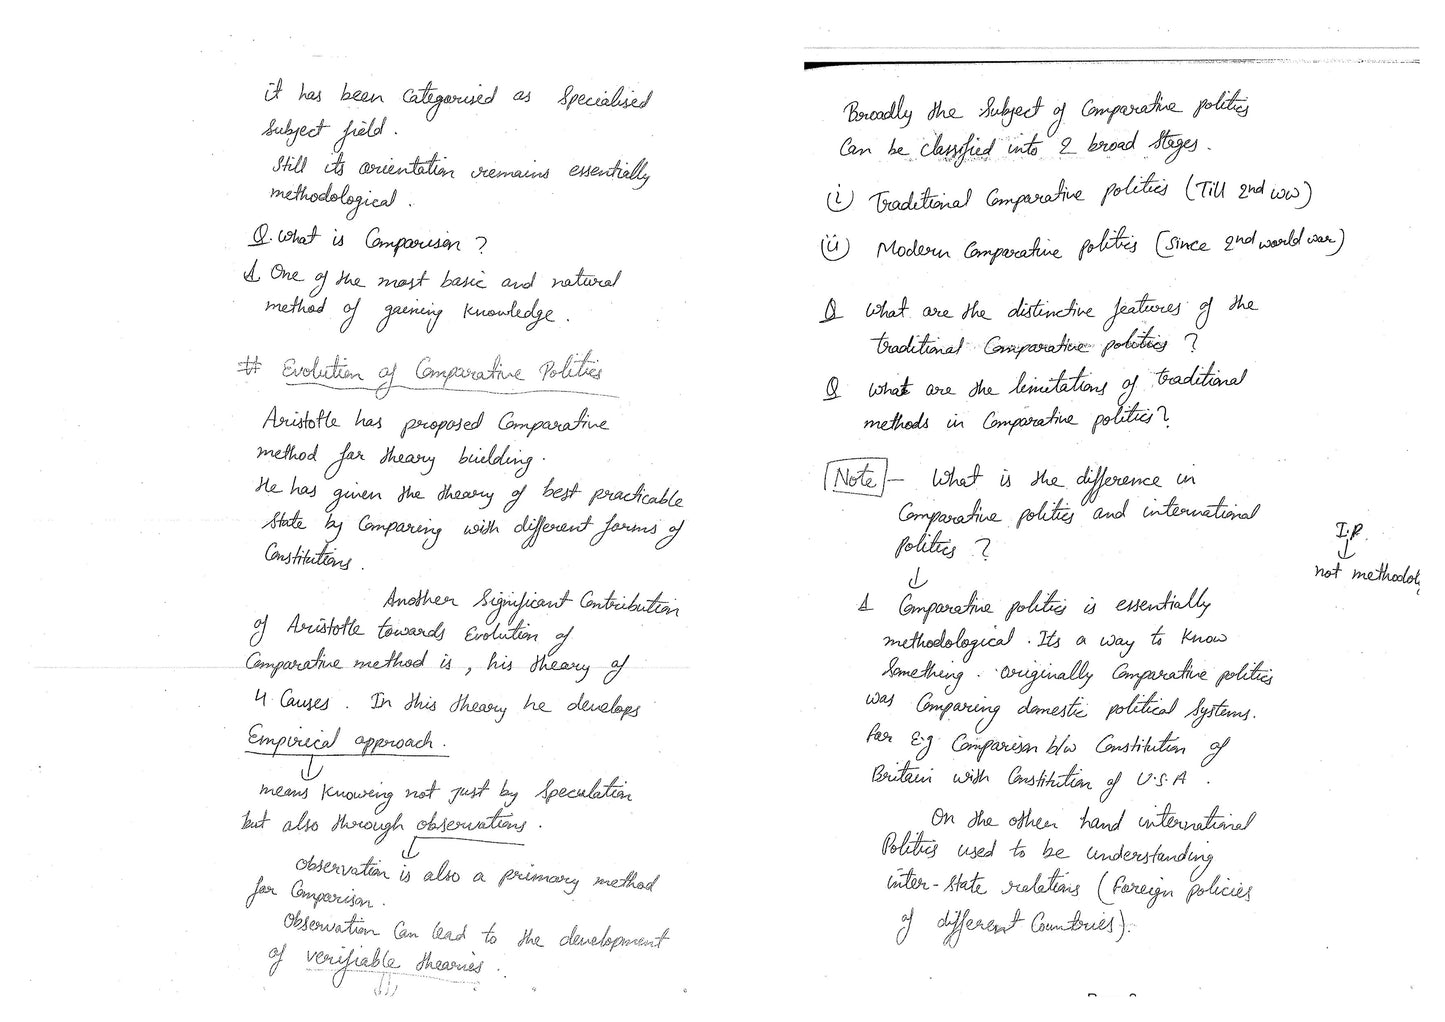 it has been Categorised as Specialised
Subject field.
Still its orientation remains essentially
methodological.
Q. What is Comparison?
A One of the most basic and natural
method of gaining knowledge.
# Evolution of Comparative Politics
Aristotle has proposed Comparative
method for theory building.
He has given the theory of best practicable
State by Comparing with different forms of
Constitutions.
Another Significant Contribution
of Aristotle towards Evolution of
Comparative method is, his theory of
4 Causes. In this theory he develops
Empirical approach.
↓
means knowing not just by Speculation
but also through observations.
↓
observation is also a primary method
for Comparison.
Observation Can lead to the development
of verifiable theories.
Broadly the Subject of Comparative politics
Can be classified into 2 broad Stages.
(i) Traditional Comparative politics (Till 2nd WW)
(ii) Modern Comparative politics (Since 2nd world war)
Q What are the distinctive features of the
traditional Comparative politics?
Q What are the limitations of traditional
methods in Comparative politics?
Note — What is the difference in
Comparative politics and international
politics?
↓
A Comparative politics is essentially
methodological. Its a way to know
Something. originally Comparative politics
was Comparing domestic political Systems.
For E.g Comparison b/w Constitution of
Britain with Constitution of U.S.A.
On the other hand international
Politics used to be understanding
inter-State relations (Foreign policies
of different Countries).
I.R
↓
not methodol